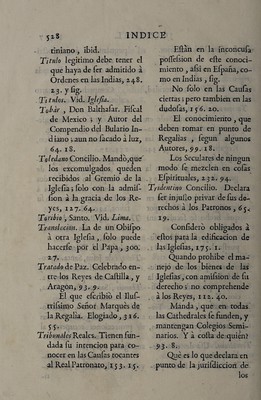 528 INDICE
tiniano, ibid.
Titulo legitimo debe tener el
que haya de ser admitido à
Ordenes en las Indias, 248.
23. y sig.
Titulos. Vid. Iglesia.
Tobár, Don Balthasar. Fiscal
de Mexico; y Autor del
Compendio del Bulario In-
diano; aun no sacado à luz,
64. 18.
Toledano Concilio. Mandò, que
los excomulgados queden
recibidos al Gremio de la
Iglesia; solo con la admis-
sion à la gracia de los Re-
yes, 127. 64.
Toribio, Santo. Vid. Lima.
Translacion. La de un Obispo
à otra Iglesia, solo puede
hacerse por el Papa, 300.
27.
Tratado de Paz. Celebrado en-
tre los Reyes de Castilla, y
Aragon, 93. 9.
El que escribiò el Ilus-
trissimo Señor Marquès de
la Regalia. Elogiado, 316.
55.
Tribunales Reales. Tienen fun-
dada su intencion para co-
nocer en las Causas tocantes
al Real Patronato, 153. 15.
Estàn en la inconcusa
possession de este conoci-
miento, assi en España, co-
mo en Indias, sig.
No solo en las Causas
ciertas; pero tambien en las
dudosas, 156. 20.
El conocimiento, que
deben tomar en punto de
Regalias, segun algunos
Autores, 99. 18.
Los Seculares de ningun
modo se mezclen en cosas
Espirituales, 232. 94.
Tridentino Concilio. Declara
ser injusto privar de sus de-
rechos à los Patronos, 65.
19.
Considerò obligados à
estos para la edificacion de
las Iglesias, 175. 1.
Quando prohibe el ma-
nejo de los bienes de las
Iglesias, con amission de su
derecho; no comprehende
à los Reyes, 112. 40.
Manda, que en todas
las Cathedrales se funden, y
mantengan Colegios Semi-
narios. Y à costa de quièn?
93. 8.
Què es lo que declara en
punto de la jurisdiccion de
los